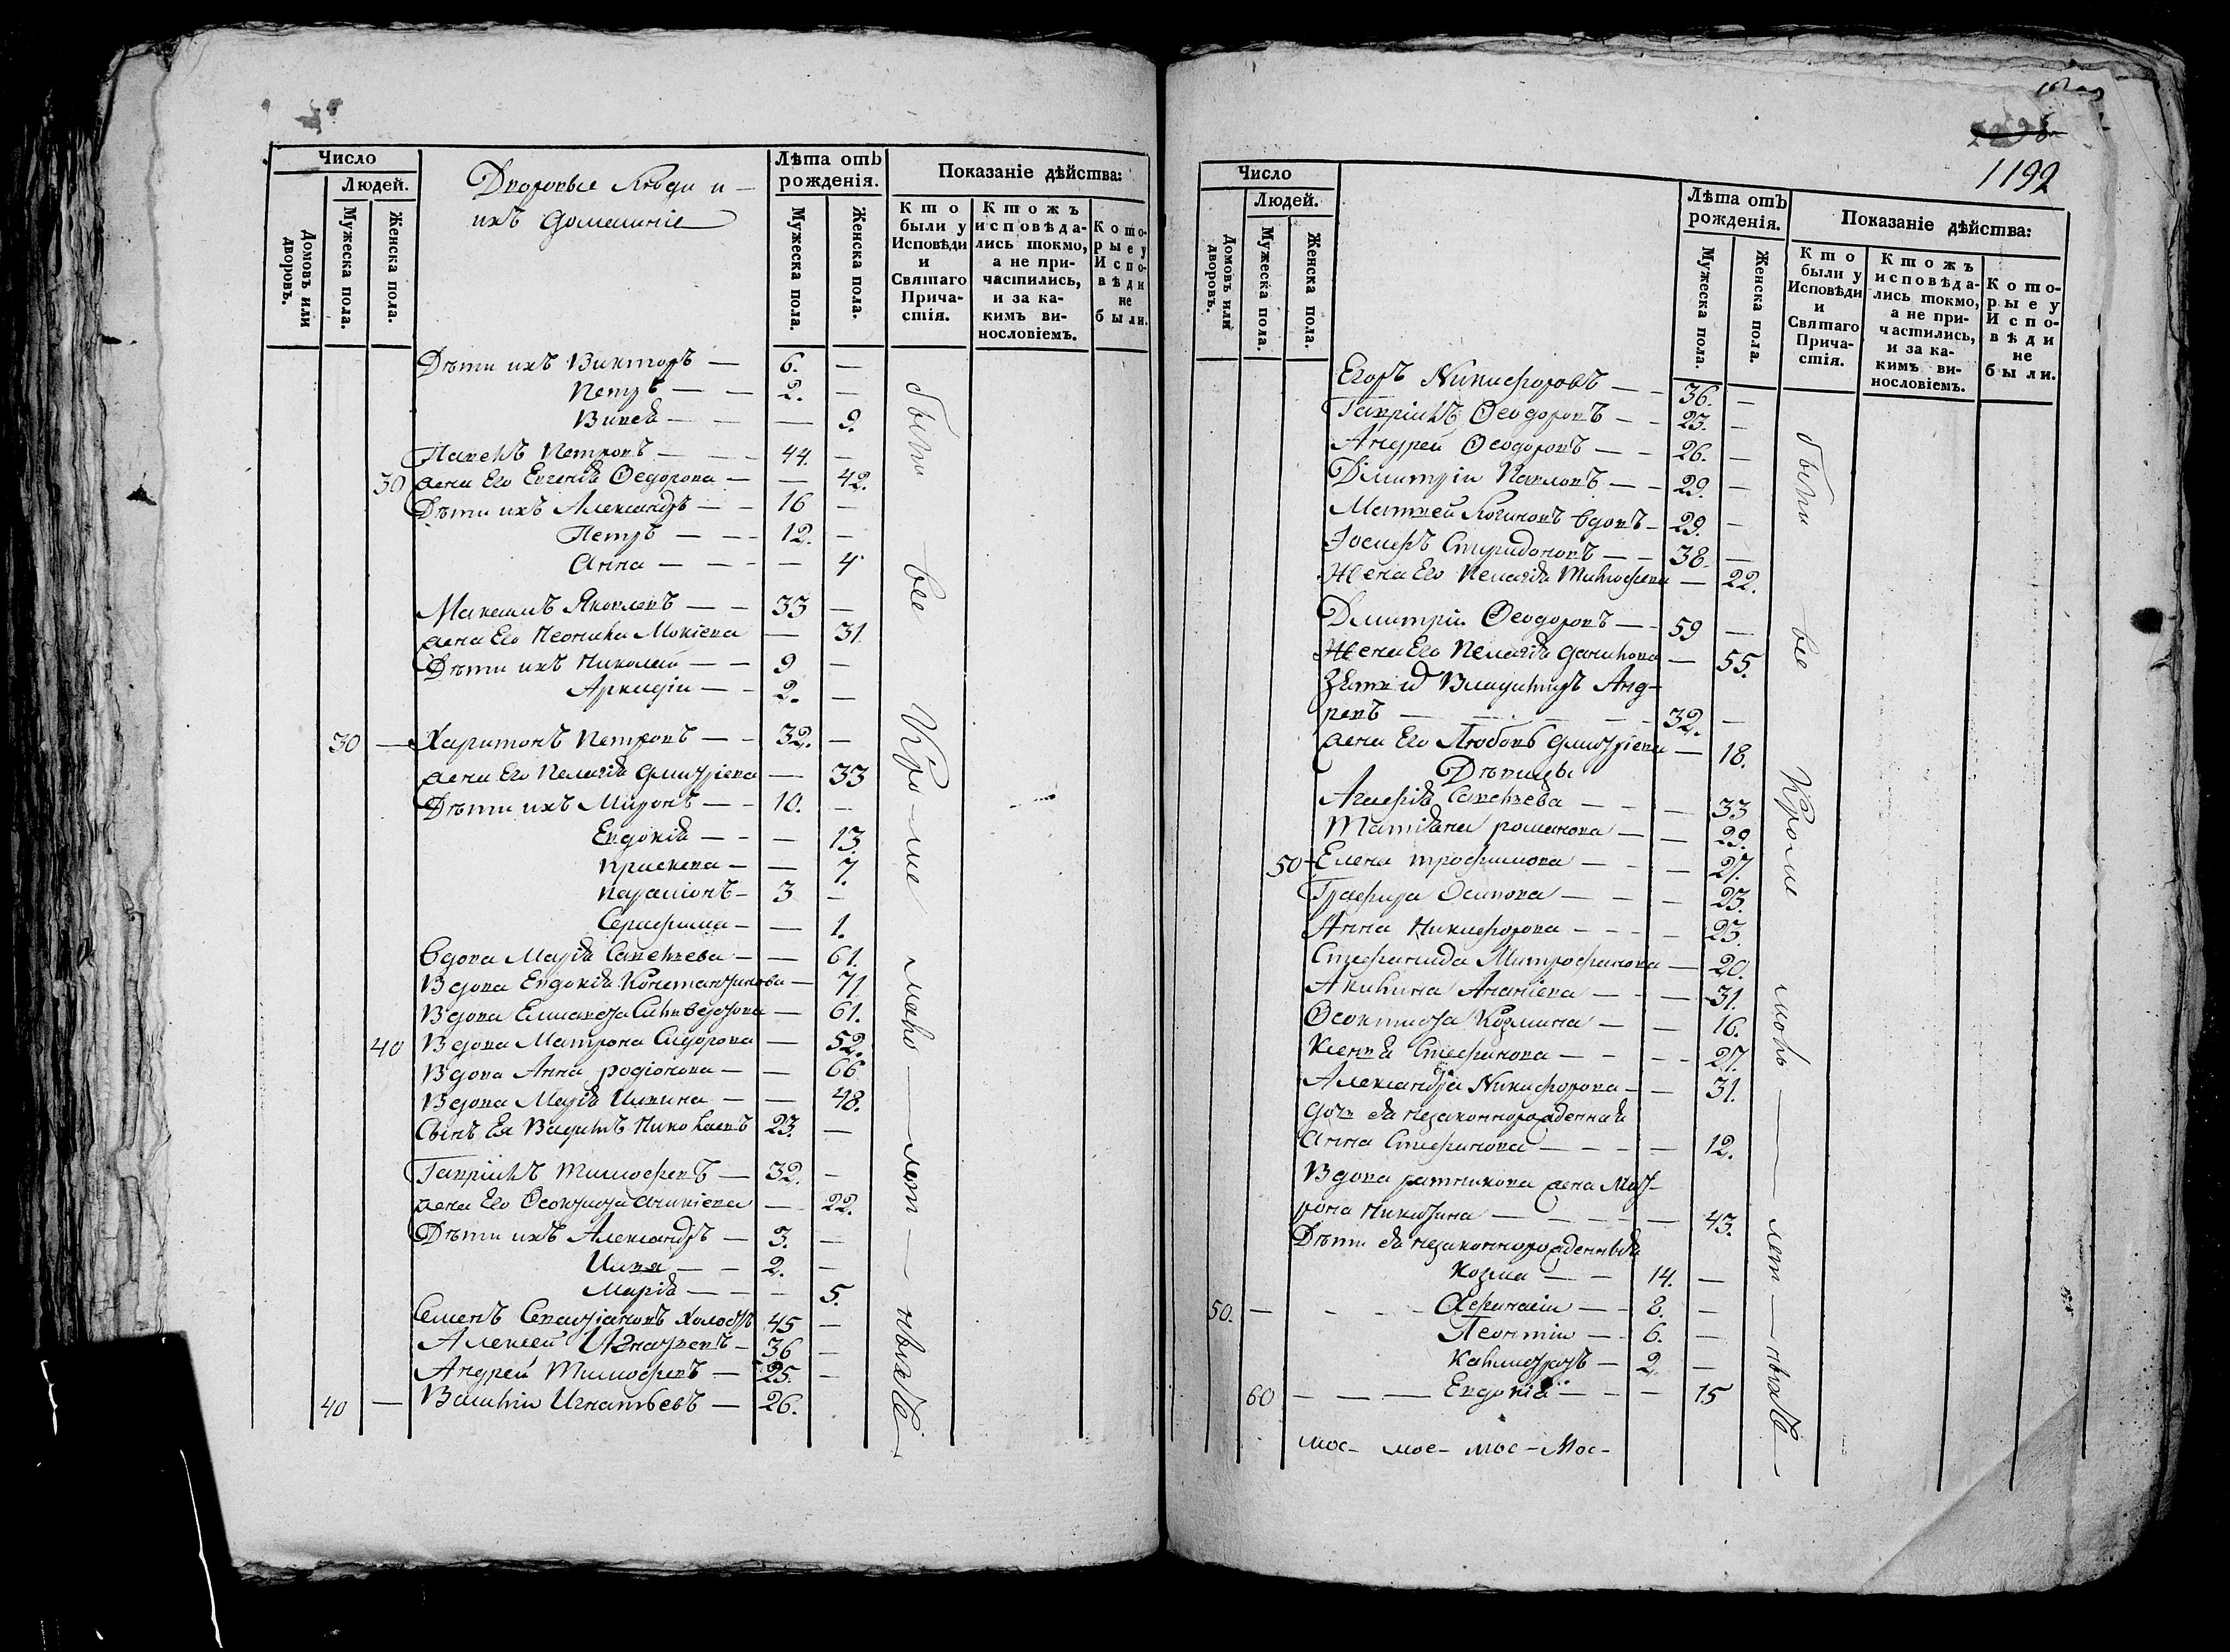 Число
Людей.
Домовъ или дворовъ.
Мужеска пола.
Женска пола.
Дворовые Люди и
ихъ домашніе
Лѣта отъ рожденія.
Мужеска пола.
Женска пола.
Показаніе дѣйства:
Кто были у Исповѣди и Святаго Причастія.
Ктожъ исповѣдались токмо, а не причастились, и за какимъ винословіемъ.
Которые у Исповѣди не были.
Дѣти ихъ Викторъ — 6. —
Петръ — — 2. —
— — 9.
Павелъ Петровъ — — — 44. —
30 жена Его Евгенія Ѳедорова — — 42.
Дѣти ихъ Александръ — — 16 —
Петръ — — — 12. —
Анна — — — — 4
Максимъ Яковлевъ — — 33 —
жена Его Неонила Мокіева — 31
Дѣти ихъ Николай — — 9 —
Аркадіи — — 2. —
30 — Харитонъ Петровъ — — 32. —
жена Его Пелагія Дмитріева — 33
Дѣти ихъ Миронъ — — 10. —
Евдокія — — — 13
— — 7.
— 3 —
Серафима — — 1.
Вдова Марія Савельева — — 61.
Вдова Евдокія Константинова — 71
Вдова Елисавета Силивестрова — 61.
40 Вдова Матрона Сидорова — 52.
Вдова Анна родіонова — — 66
Вдова Марія Ильина — — 48.
Сынъ Ея Вадимъ Николаевъ 23. —
Гавріилъ Тимофеевъ — 32. —
жена Его Ѳеоктиста — 22.
Дѣти ихъ Александръ — 3. —
Илья — — 2. —
Марія — — — 5.
Семенъ Севастіановъ Холостъ 45 —
Алексей Игнатьевъ — 36 —
Андрей Тимофеевъ — 25. —
40 — Василіи Игнатьевъ — 26.
были все Кроме мало лет ныхъ
1192
Число
Людей.
Домовъ или дворовъ.
Мужеска пола.
Женска пола.
Лѣта отъ рожденія.
Мужеска пола.
Женска пола.
Показаніе дѣйства:
Кто были у Исповѣди и Святаго Причастія.
Ктожъ исповѣдались токмо, а не причастились, и за какимъ винословіемъ.
Которые у Исповѣди не были.
Егоръ Никифоровъ — — 36. —
Гавріилъ Ѳеодоровъ — — 23. —
Андрей Ѳеодоровъ — — 26. —
Димитріи Павловъ — — 29. —
Матвей Логиновъ вдовъ — 29. —
Іосифъ Спиридоновъ — — 38. —
Жена Его Пелагія Тимофеева — 22.
Дмитріи Ѳеодоровъ — — 59 —
Жена Его Пелагія Данилова — 55.
Зять Владимиръ Анд-
ревъ — — — — — 32. —
жена Его Любовь Дмитріева — 18.
Дѣвицы
Агафія Савельева — — — 33
Татіана романова — — 29.
50 — Елена трофимова — — — 27.
Глафира Осипова — — — 23.
Анна Никифорова — — — — 23.
Стефанида Митрофанова — 20.
Акилина Ананіева — — — 31.
Ѳеоктиста Козмина — — 16.
Ксенія Стефанова — — — — 27.
Александра Никифорова — — 31.
дочь ея незаконнорожденная
Анна Стефанова — — — — 12.
Вдова ратникова жена Мат-
рона Никитина — — — — — 43.
Дѣти ея незаконнорожденныя
Козма — — 14. —
50. — — — — Афанасіи — — 8. —
Леонтіи — — 6. —
Калистратъ — 2. —
60 — — — Евдокія — — — 15
были все Кроме мало лет ныхъ
мос- мос- мос- Мос-